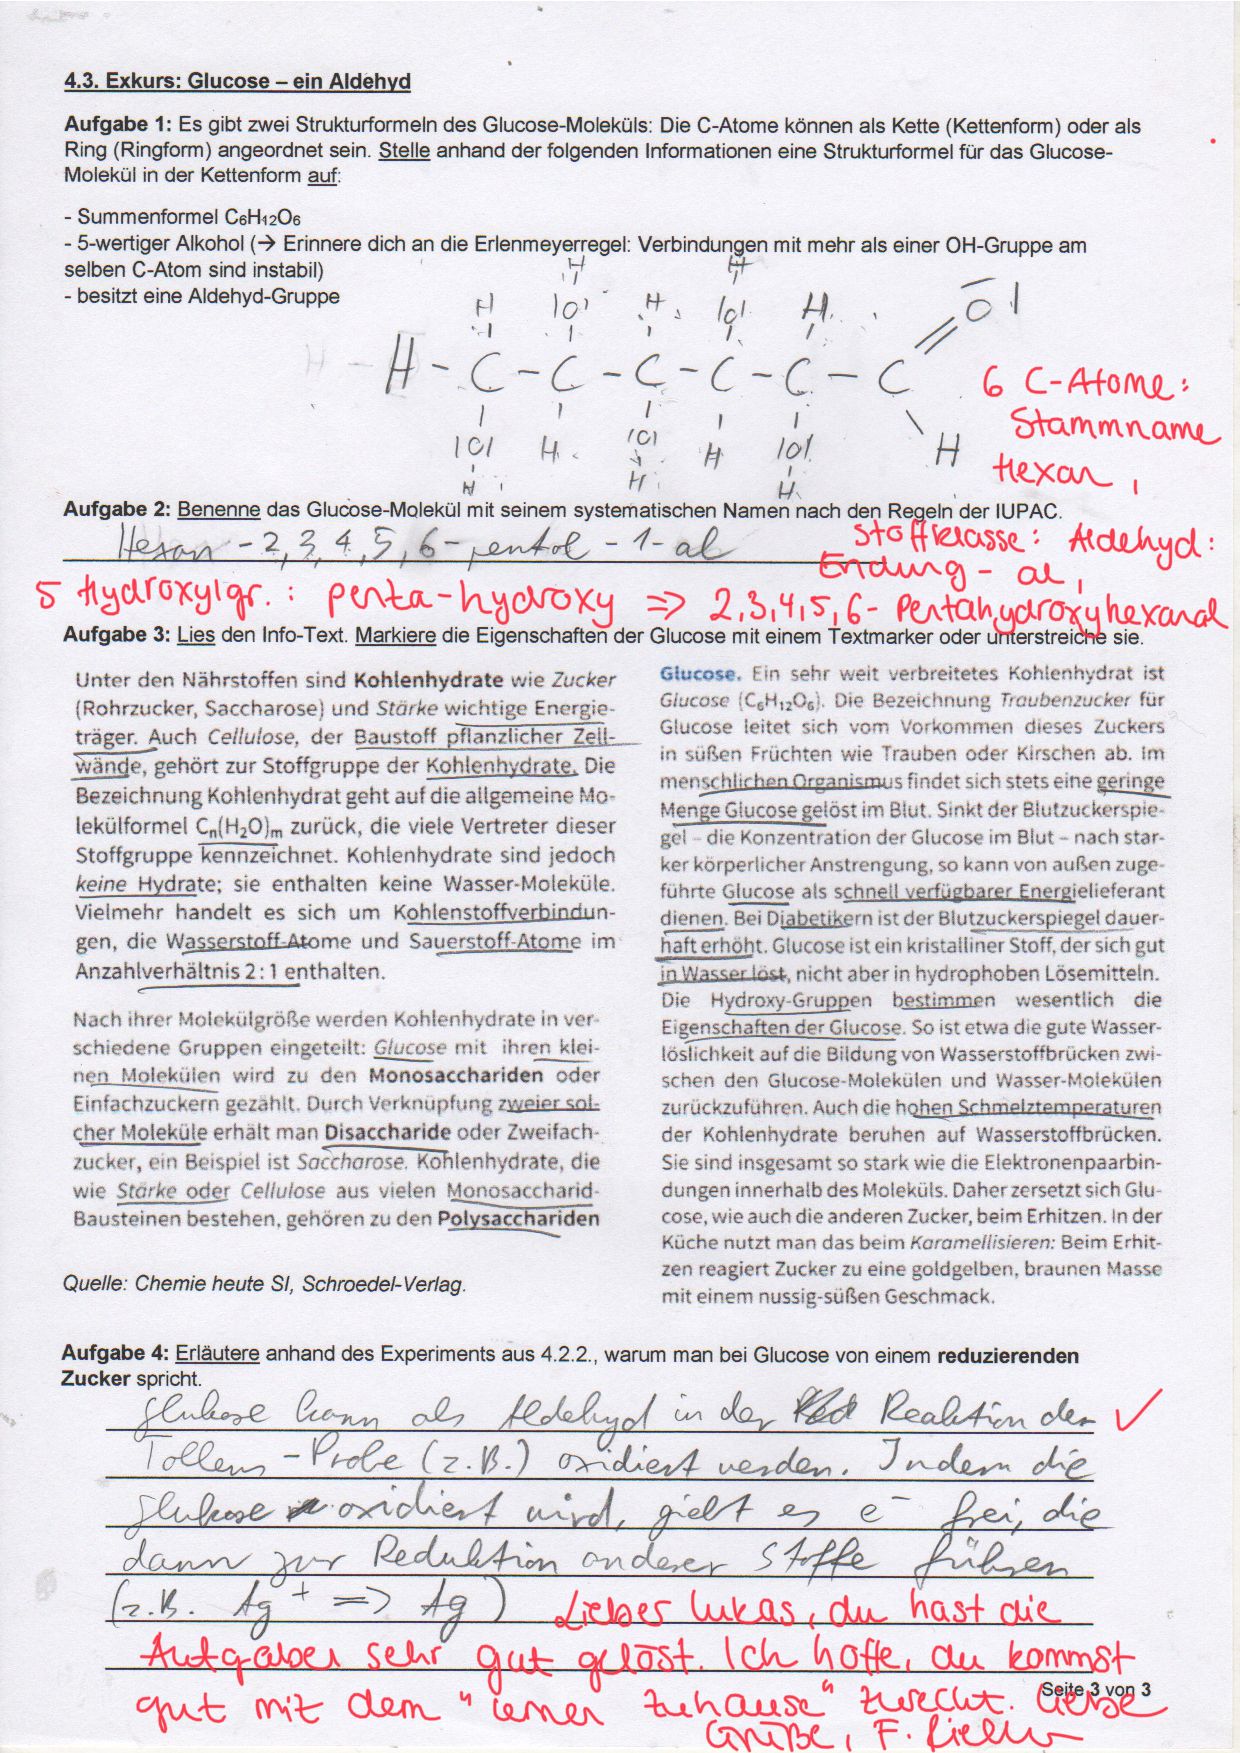 4.3. Exkurs: Glucose – ein Aldehyd
Aufgabe 1: Es gibt zwei Strukturformeln des Glucose-Moleküls: Die C-Atome können als Kette (Kettenform) oder als
Ring (Ringform) angeordnet sein. Stelle anhand der folgenden Informationen eine Strukturformel für das Glucose-
Molekül in der Kettenform auf:
- Summenformel C₆H₁₂O₆
- 5-wertiger Alkohol (→ Erinnere dich an die Erlenmeyerregel: Verbindungen mit mehr als einer OH-Gruppe am
selben C-Atom sind instabil)
- besitzt eine Aldehyd-Gruppe
H H
H |O| H |O| H O|
H - C - C - C - C - C - C
|O| H |O| H |O| H
H H H
6 C-Atome:
Stammname
Hexan,
Aufgabe 2: Benenne das Glucose-Molekül mit seinem systematischen Namen nach den Regeln der IUPAC.
Hexan - 2,3,4,5,6 - pentol - 1 - al
Stoffklasse: Aldehyd:
Endung - al,
5 Hydroxylgr.: penta-hydroxy => 2,3,4,5,6- Pentahydroxyhexanal
Aufgabe 3: Lies den Info-Text. Markiere die Eigenschaften der Glucose mit einem Textmarker oder unterstreiche sie.
Unter den Nährstoffen sind Kohlenhydrate wie Zucker
(Rohrzucker, Saccharose) und Stärke wichtige Energie-
träger. Auch Cellulose, der Baustoff pflanzlicher Zell-
wände, gehört zur Stoffgruppe der Kohlenhydrate. Die
Bezeichnung Kohlenhydrat geht auf die allgemeine Mo-
lekülformel Cₙ(H₂O)ₘ zurück, die viele Vertreter dieser
Stoffgruppe kennzeichnet. Kohlenhydrate sind jedoch
keine Hydrate; sie enthalten keine Wasser-Moleküle.
Vielmehr handelt es sich um Kohlenstoffverbindun-
gen, die Wasserstoff-Atome und Sauerstoff-Atome im
Anzahlverhältnis 2 : 1 enthalten.
Nach ihrer Molekülgröße werden Kohlenhydrate in ver-
schiedene Gruppen eingeteilt: Glucose mit ihren klei-
nen Molekülen wird zu den Monosacchariden oder
Einfachzuckern gezählt. Durch Verknüpfung zweier sol-
cher Moleküle erhält man Disaccharide oder Zweifach-
zucker, ein Beispiel ist Saccharose. Kohlenhydrate, die
wie Stärke oder Cellulose aus vielen Monosaccharid-
Bausteinen bestehen, gehören zu den Polysacchariden
Quelle: Chemie heute SI, Schroedel-Verlag.
Glucose. Ein sehr weit verbreitetes Kohlenhydrat ist
Glucose (C₆H₁₂O₆). Die Bezeichnung Traubenzucker für
Glucose leitet sich vom Vorkommen dieses Zuckers
in süßen Früchten wie Trauben oder Kirschen ab. Im
menschlichen Organismus findet sich stets eine geringe
Menge Glucose gelöst im Blut. Sinkt der Blutzuckerspie-
gel – die Konzentration der Glucose im Blut – nach star-
ker körperlicher Anstrengung, so kann von außen zuge-
führte Glucose als schnell verfügbarer Energielieferant
dienen. Bei Diabetikern ist der Blutzuckerspiegel dauer-
haft erhöht. Glucose ist ein kristalliner Stoff, der sich gut
in Wasser löst, nicht aber in hydrophoben Lösemitteln.
Die Hydroxy-Gruppen bestimmen wesentlich die
Eigenschaften der Glucose. So ist etwa die gute Wasser-
löslichkeit auf die Bildung von Wasserstoffbrücken zwi-
schen den Glucose-Molekülen und Wasser-Molekülen
zurückzuführen. Auch die hohen Schmelztemperaturen
der Kohlenhydrate beruhen auf Wasserstoffbrücken.
Sie sind insgesamt so stark wie die Elektronenpaarbin-
dungen innerhalb des Moleküls. Daher zersetzt sich Glu-
cose, wie auch die anderen Zucker, beim Erhitzen. In der
Küche nutzt man das beim Karamellisieren: Beim Erhit-
zen reagiert Zucker zu eine goldgelben, braunen Masse
mit einem nussig-süßen Geschmack.
Aufgabe 4: Erläutere anhand des Experiments aus 4.2.2., warum man bei Glucose von einem reduzierenden
Zucker spricht.
Glukose kann als Aldehyd in der Reaktion der ✓
Tollens - Probe (z.B.) oxidiert werden. Indem die
Glukose oxidiert wird, giebt es e⁻ frei, die
dann zur Reduktion anderer Stoffe führen
(z.B. Ag⁺ => Ag) Lieber Lukas, du hast die
Aufgaben sehr gut gelöst. Ich hoffe, du kommst
gut mit dem "lernen zuhause" zurecht. Liebe
Grüße, F.
Seite 3 von 3